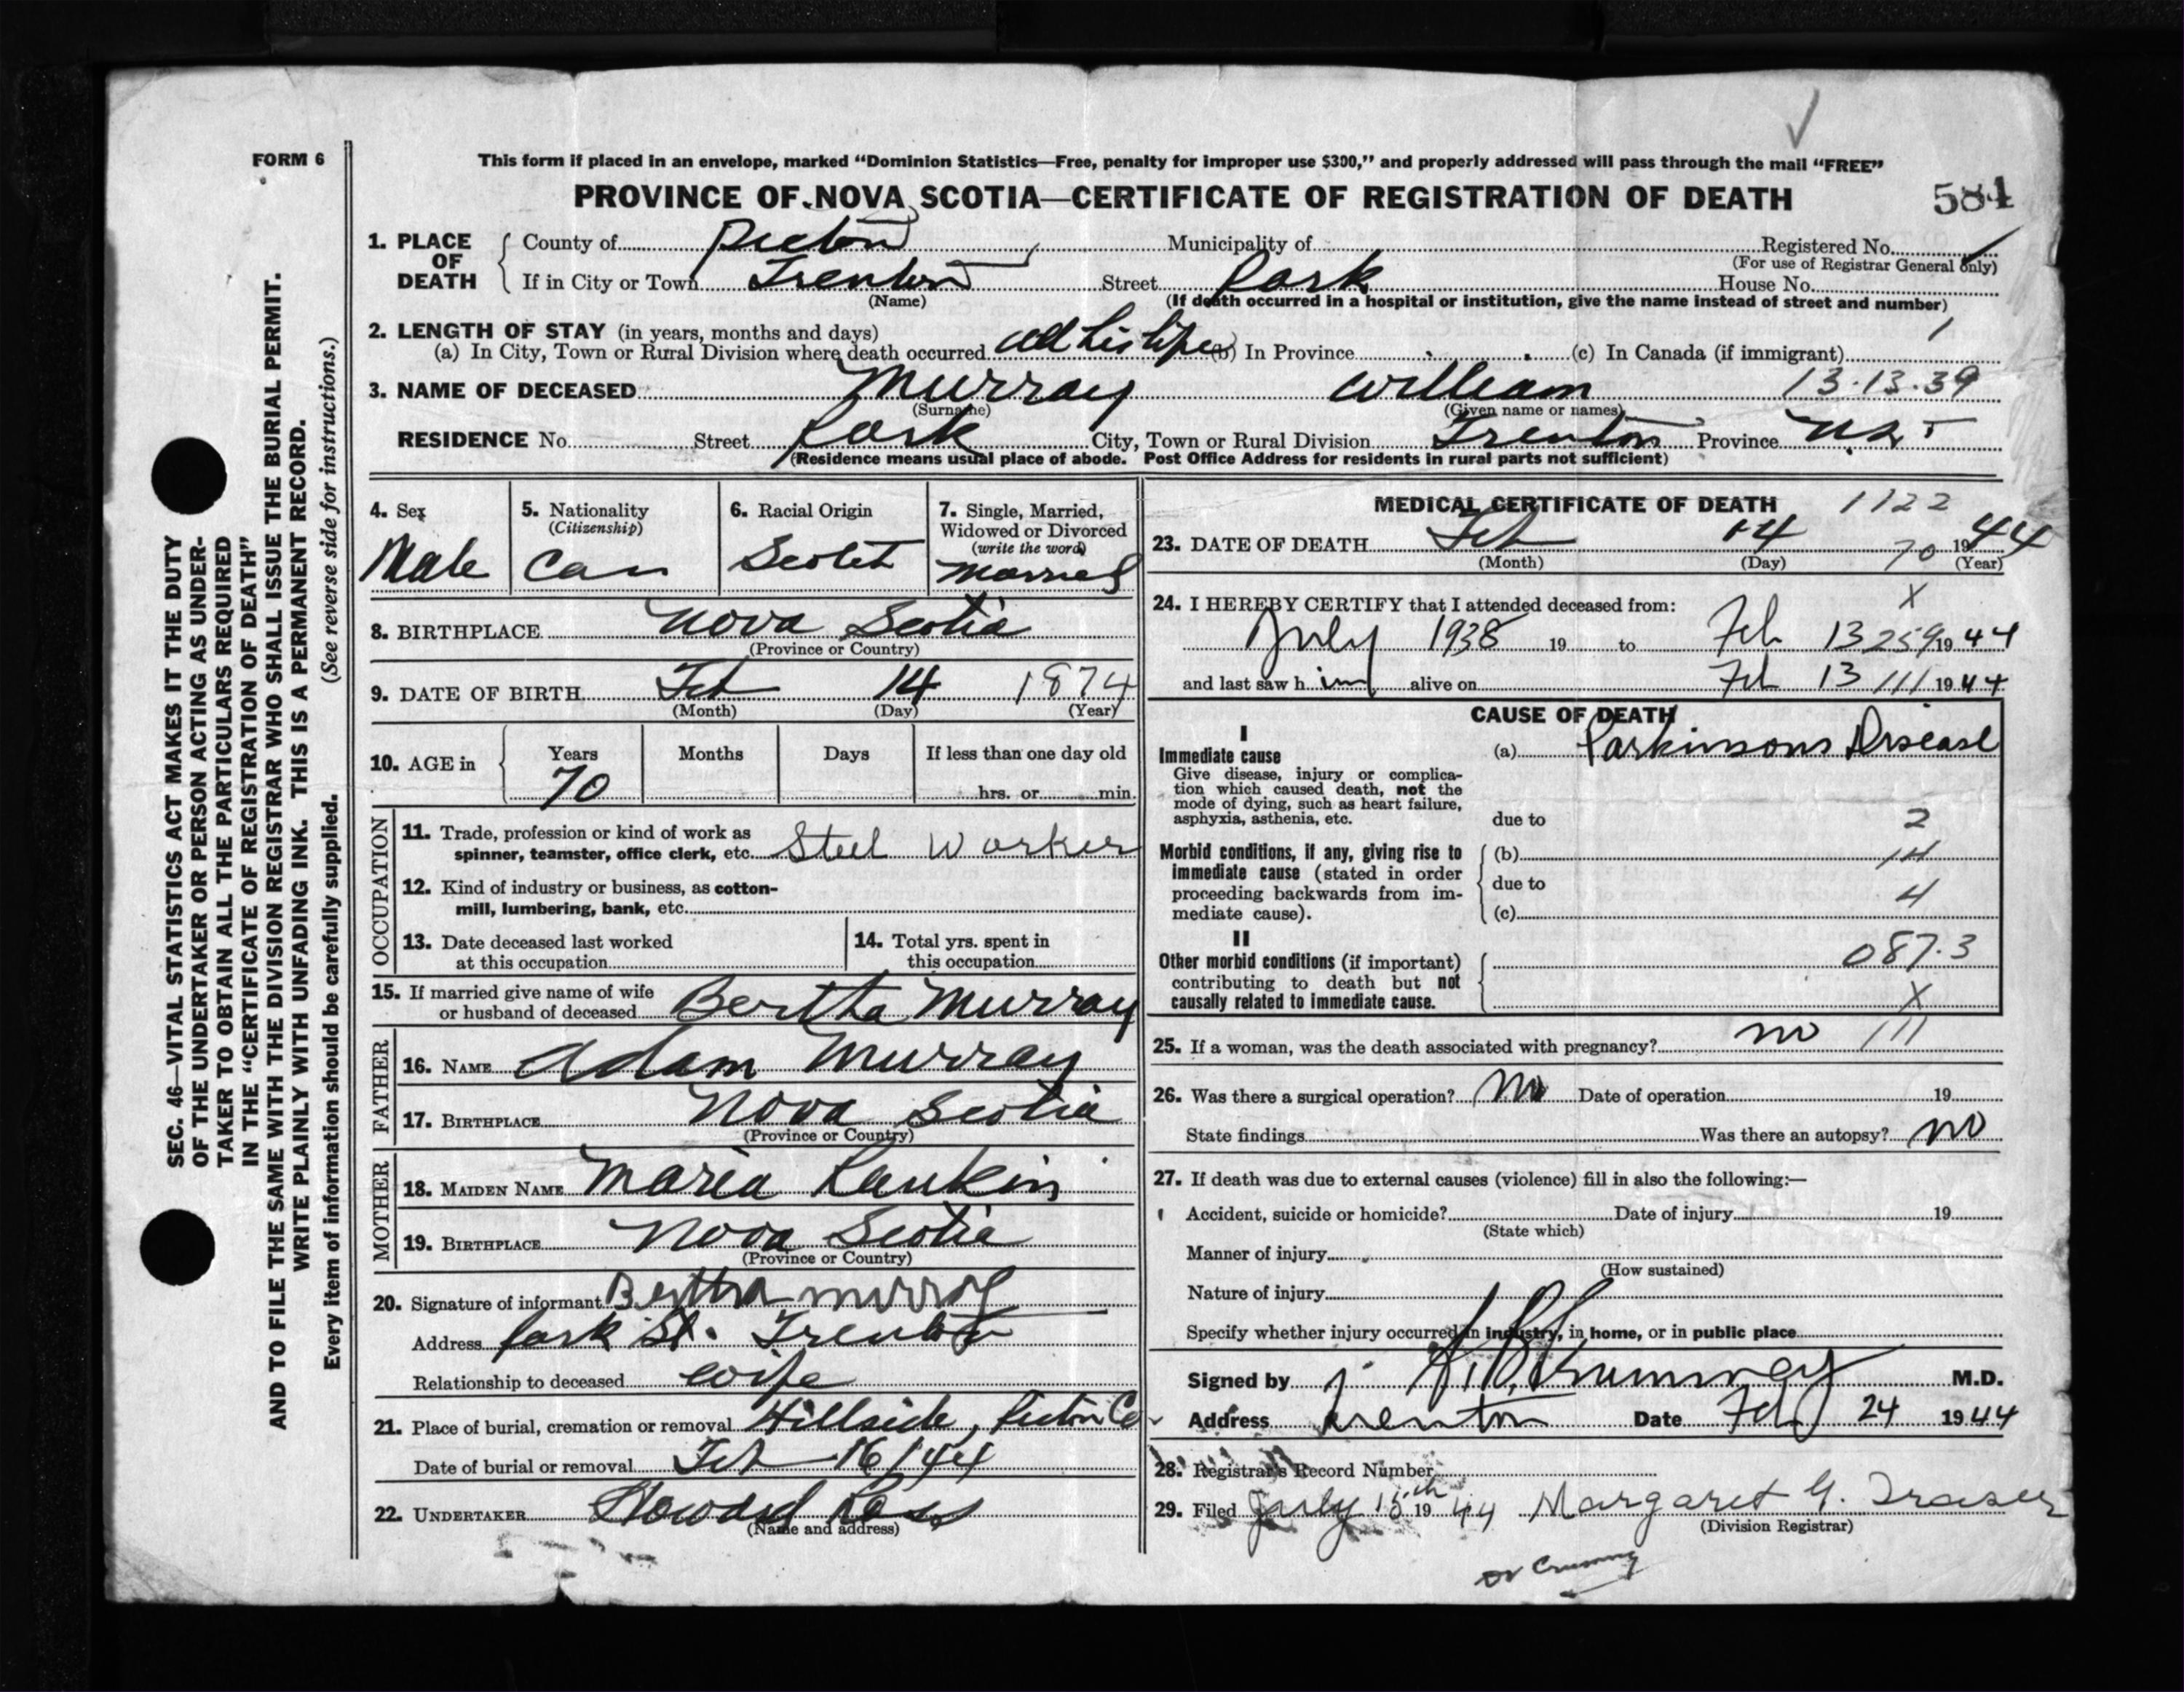 FORM 6
This form if placed in an envelope, marked “Dominion Statistics—Free, penalty for improper use $300,” and properly addressed will pass through the mail “FREE”
PROVINCE OF NOVA SCOTIA—CERTIFICATE OF REGISTRATION OF DEATH 584
1. PLACE OF DEATH
County of Pictou Municipality of Registered No.
(For use of Registrar General only)
If in City or Town Trenton Street Park House No.
(Name) (If death occurred in a hospital or institution, give the name instead of street and number)
2. LENGTH OF STAY (in years, months and days) 1
(a) In City, Town or Rural Division where death occurred all his life (b) In Province (c) In Canada (if immigrant)
3. NAME OF DECEASED Murray William 13.13.39
(Surname) (Given name or names)
RESIDENCE No. Street Park City, Town or Rural Division Trenton Province N.S.
(Residence means usual place of abode. Post Office Address for residents in rural parts not sufficient)
4. Sex Male
5. Nationality (Citizenship) Can
6. Racial Origin Scotch
7. Single, Married, Widowed or Divorced (write the word) Married
8. BIRTHPLACE Nova Scotia
(Province or Country)
9. DATE OF BIRTH Feb 14 1874
(Month) (Day) (Year)
10. AGE in Years 70 Months Days If less than one day old hrs. or min.
OCCUPATION
11. Trade, profession or kind of work as spinner, teamster, office clerk, etc. Steel Worker
12. Kind of industry or business, as cotton-mill, lumbering, bank, etc.
13. Date deceased last worked at this occupation
14. Total yrs. spent in this occupation
15. If married give name of wife or husband of deceased Bertha Murray
FATHER
16. NAME Adam Murray
17. BIRTHPLACE Nova Scotia
(Province or Country)
MOTHER
18. MAIDEN NAME Maria Rankin
19. BIRTHPLACE Nova Scotia
(Province or Country)
20. Signature of informant Bertha Murray
Address Park St. Trenton
Relationship to deceased wife
21. Place of burial, cremation or removal Hillside, Pictou Co
Date of burial or removal Feb 16/44
22. UNDERTAKER Howard Ross
(Name and address)
MEDICAL CERTIFICATE OF DEATH 1122
23. DATE OF DEATH Feb 14 70 1944
(Month) (Day) (Year)
24. I HEREBY CERTIFY that I attended deceased from: X
July 1938 19 to Feb 13 259 19 44
and last saw h im alive on Feb 13 111 19 44
CAUSE OF DEATH
I
Immediate cause (a) Parkinsons Disease
Give disease, injury or complication which caused death, not the mode of dying, such as heart failure, asphyxia, asthenia, etc.
due to 2
Morbid conditions, if any, giving rise to immediate cause (stated in order proceeding backwards from immediate cause).
(b) 14
due to 4
(c)
II
Other morbid conditions (if important) contributing to death but not causally related to immediate cause.
087.3
X
25. If a woman, was the death associated with pregnancy? no 111
26. Was there a surgical operation? No Date of operation 19
State findings Was there an autopsy? no
27. If death was due to external causes (violence) fill in also the following:—
Accident, suicide or homicide? Date of injury 19
(State which)
Manner of injury
(How sustained)
Nature of injury
Specify whether injury occurred in industry, in home, or in public place
Signed by M.D.
Address Trenton Date Feb 24 1944
28. Registrar's Record Number
29. Filed July 15th 19 44 Margaret G. Fraser
(Division Registrar)
Dr Crummy
SEC. 46—VITAL STATISTICS ACT MAKES IT THE DUTY
OF THE UNDERTAKER OR PERSON ACTING AS UNDER-
TAKER TO OBTAIN ALL THE PARTICULARS REQUIRED
IN THE “CERTIFICATE OF REGISTRATION OF DEATH”
AND TO FILE THE SAME WITH THE DIVISION REGISTRAR WHO SHALL ISSUE THE BURIAL PERMIT.
WRITE PLAINLY WITH UNFADING INK. THIS IS A PERMANENT RECORD.
Every item of information should be carefully supplied. (See reverse side for instructions.)